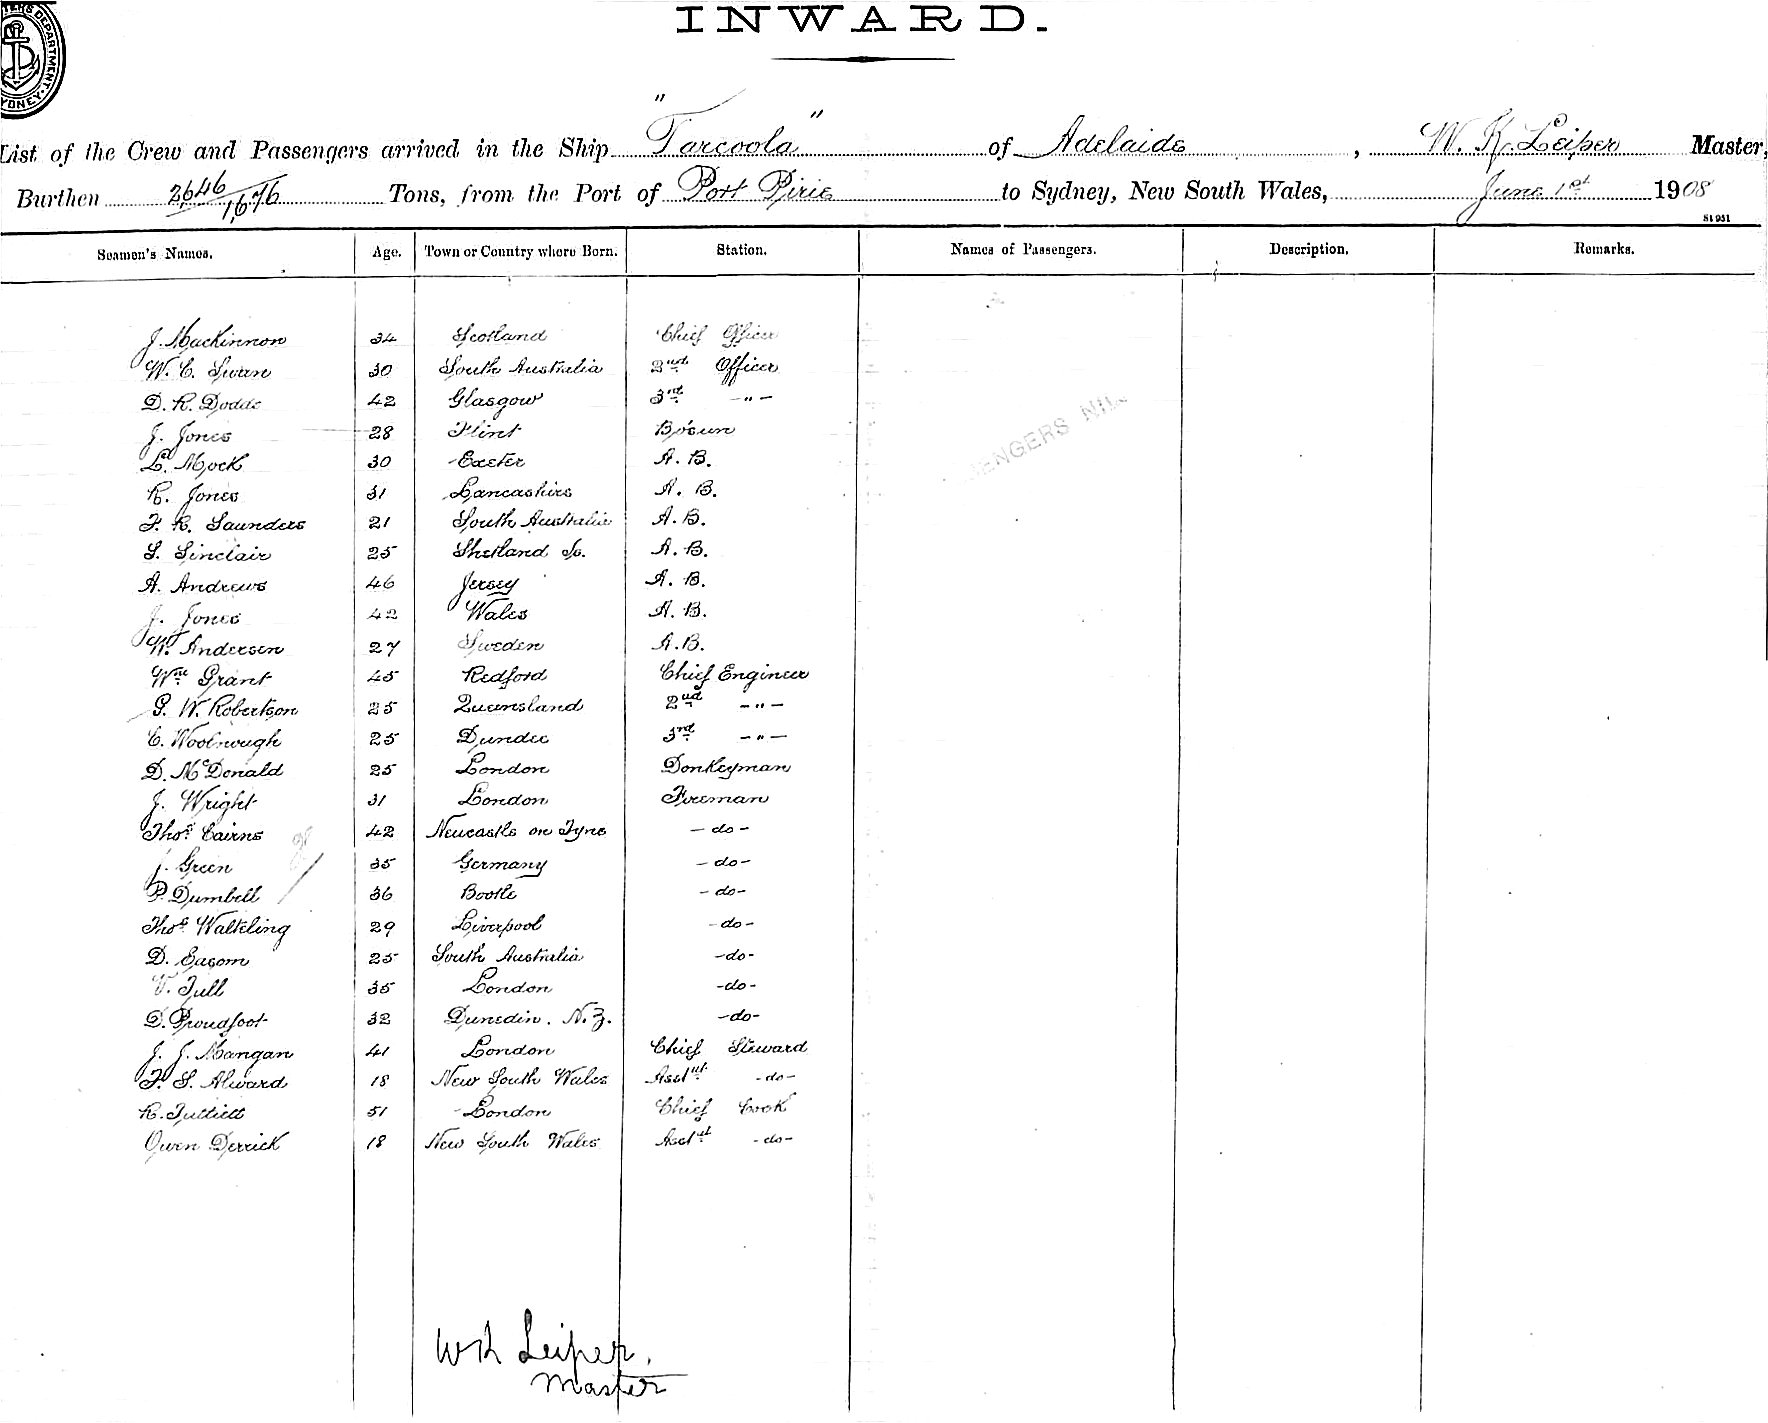 INWARD.
List of the Crew and Passengers arrived in the Ship "Tarcoola" of Adelaide, W. K. Leiper Master,
Burthen 2646/1676 Tons, from the Port of Port Pirie to Sydney, New South Wales, June 1st 1908
S1951
Seamen's Names. Age. Town or Country where Born. Station. Names of Passengers. Description. Remarks.
J. MacKinnon 34 Scotland Chief Officer
W. C. Swan 30 South Australia 2nd Officer
D. R. Dodds 42 Glasgow 3rd -"-
J. Jones 28 Flint Bosun
L. Mock 30 Exeter A. B.
R. Jones 31 Lancashire A. B.
F. R. Saunders 21 South Australia A. B.
S. Sinclair 25 Shetland Is. A. B.
A. Andrews 46 Jersey A. B.
J. Jones 42 Wales A. B.
W. Andersen 27 Sweden A. B.
Wm Grant 45 Redford Chief Engineer
G. W. Robertson 25 Queensland 2nd -"-
C. Woolnough 25 Dundee 3rd -"-
D. McDonald 25 London Donkeyman
J. Wright 31 London Fireman
Thos Cairns 42 Newcastle on Tyne -do-
J. Green 35 Germany -do-
P. Dumbell 36 Bootle -do-
Thos Walkling 29 Liverpool -do-
D. Easom 25 South Australia -do-
V. Tull 35 London -do-
D. Proudfoot 32 Dunedin. N.Z. -do-
J. J. Mangan 41 London Chief Steward
F. S. Alward 18 New South Wales Asst -do-
R. 51 London Chief Cook
Owen Derrick 18 New South Wales Asst -do-
ENGERS NIL
W K Leiper.
Master